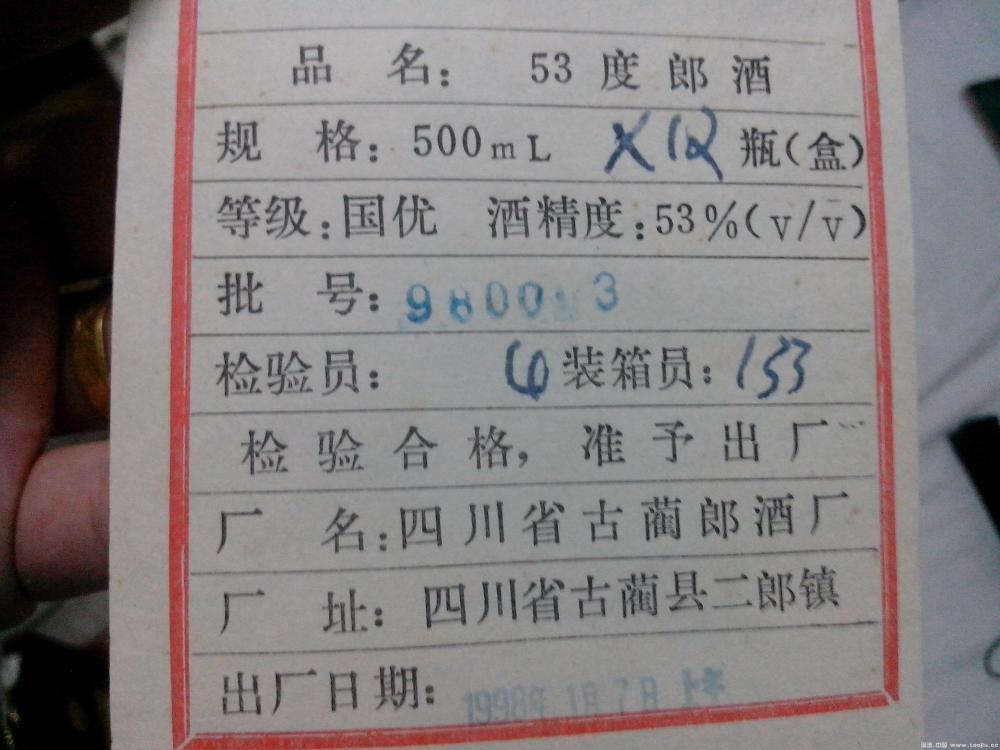 品 名： 53 度 郎 酒
规 格：500mL X12 瓶(盒)
等级：国优 酒精度：53%(v/v)
批 号：9800 3
检验员： 装箱员：133
检验合格，准予出厂
厂 名：四川省古蔺郎酒厂
厂 址：四川省古蔺县二郎镇
出厂日期：1998年1月7日 上午